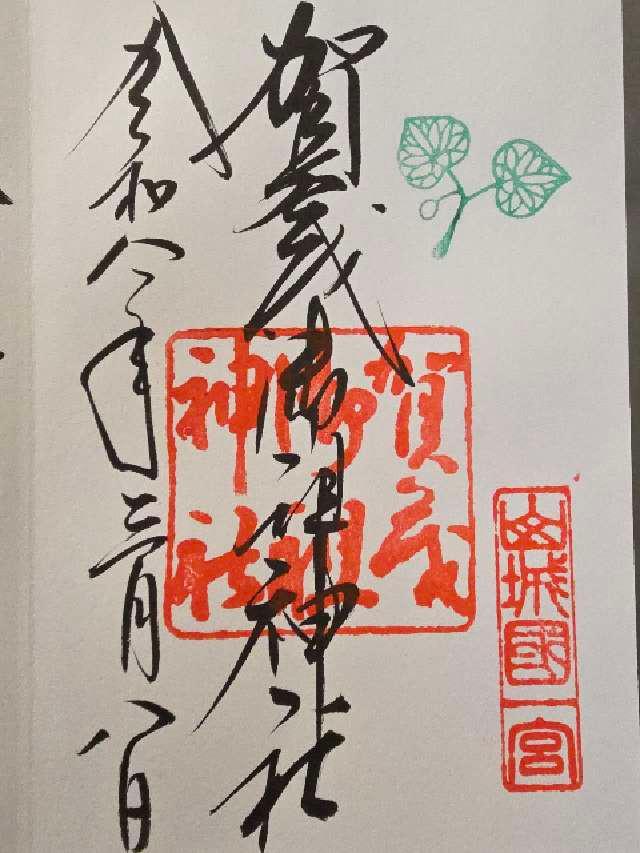 山城國一宮
賀茂御祖神社
賀茂
御祖
神社
令和八年三月八日